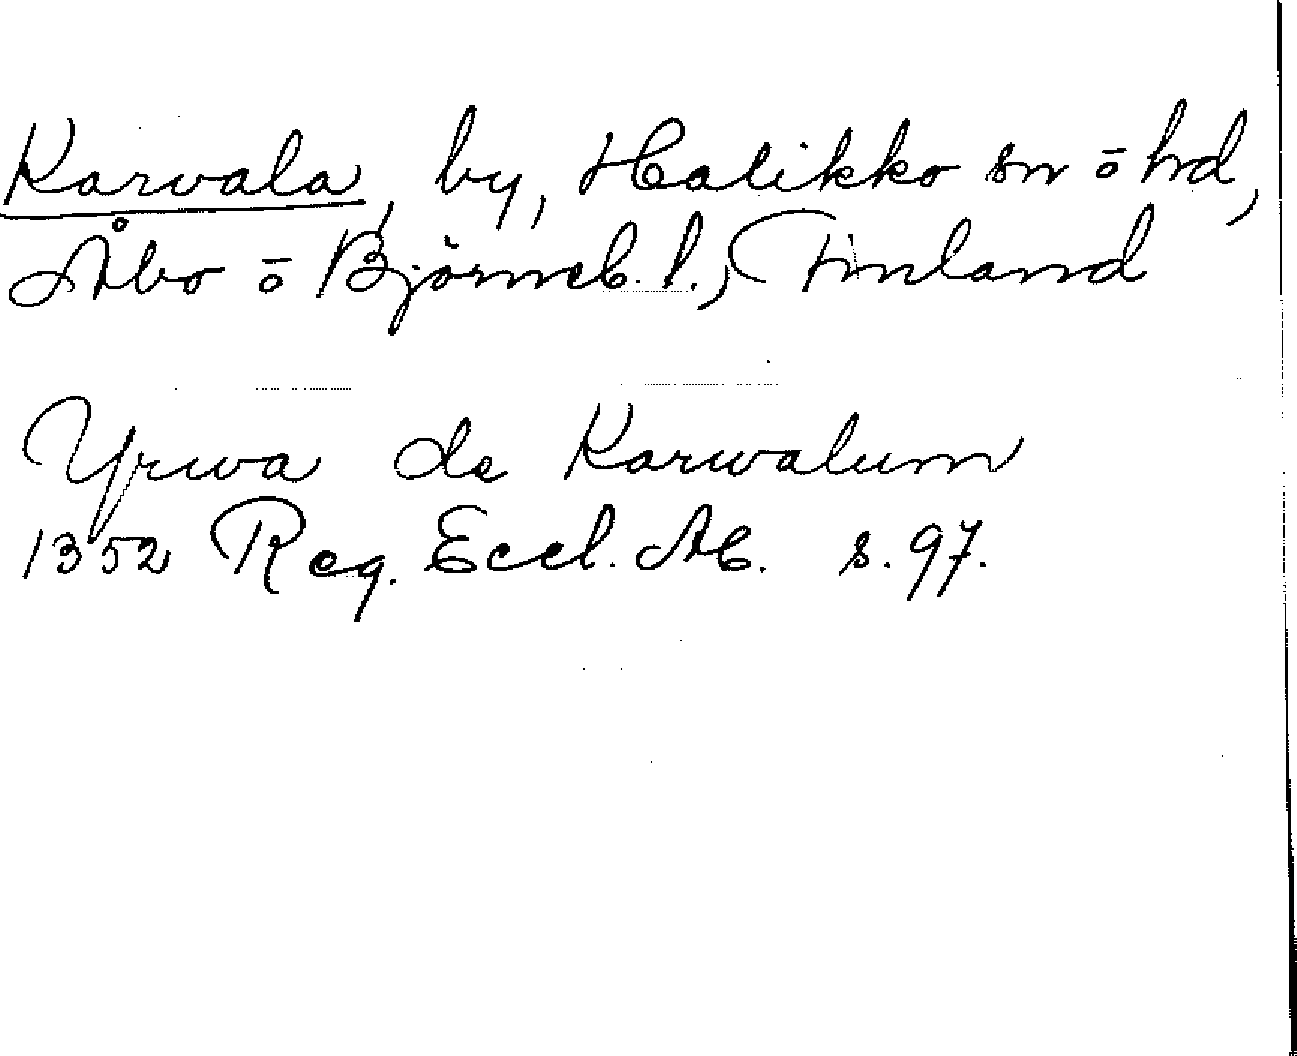 Karvala, by, Halikko sn ō hd,
Åbo ō Björneb. l., Finland
Yrwa de Karwalum
1352 Reg. Eccl. Ab. s. 97.